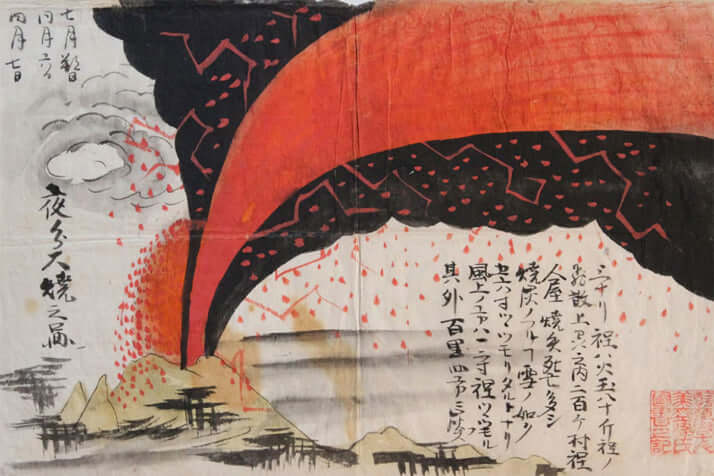 程ハ火玉八十斤程ノ
散上其之内二百ケ村程
人屋焼失死亡多シ
焼灰ノフルフ雪ノ如シ
五六寸ツヽツモリタルトナリ
風上ノ方ハ一二寸程ツヽツモル
其外百里四方ニ降
七月朔日
同月六日
同月七日
夜分大焼之図